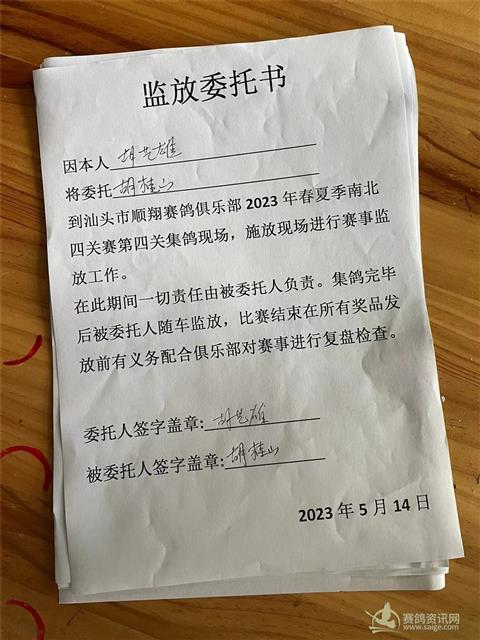 监放委托书
因本人 胡艺雄
将委托 胡桂山
到汕头市顺翔赛鸽俱乐部 2023 年春夏季南北
四关赛第四关集鸽现场，施放现场进行赛事监
放工作。
在此期间一切责任由被委托人负责。集鸽完毕
后被委托人随车监放，比赛结束在所有奖品发
放前有义务配合俱乐部对赛事进行复盘检查。
委托人签字盖章: 胡艺雄
被委托人签字盖章: 胡桂山
2023 年 5 月 14 日
赛鸽资讯网
www.saige.com